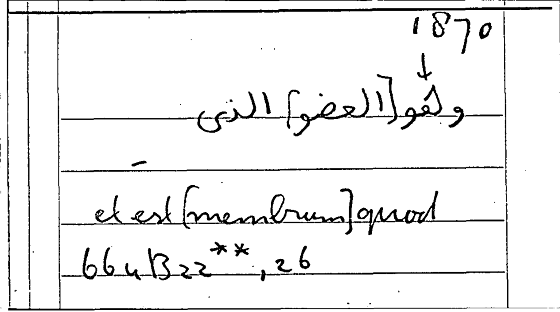 1870
↓
وهو [العضو] الذى
–
et est [membrum] quod
664B22**, 26